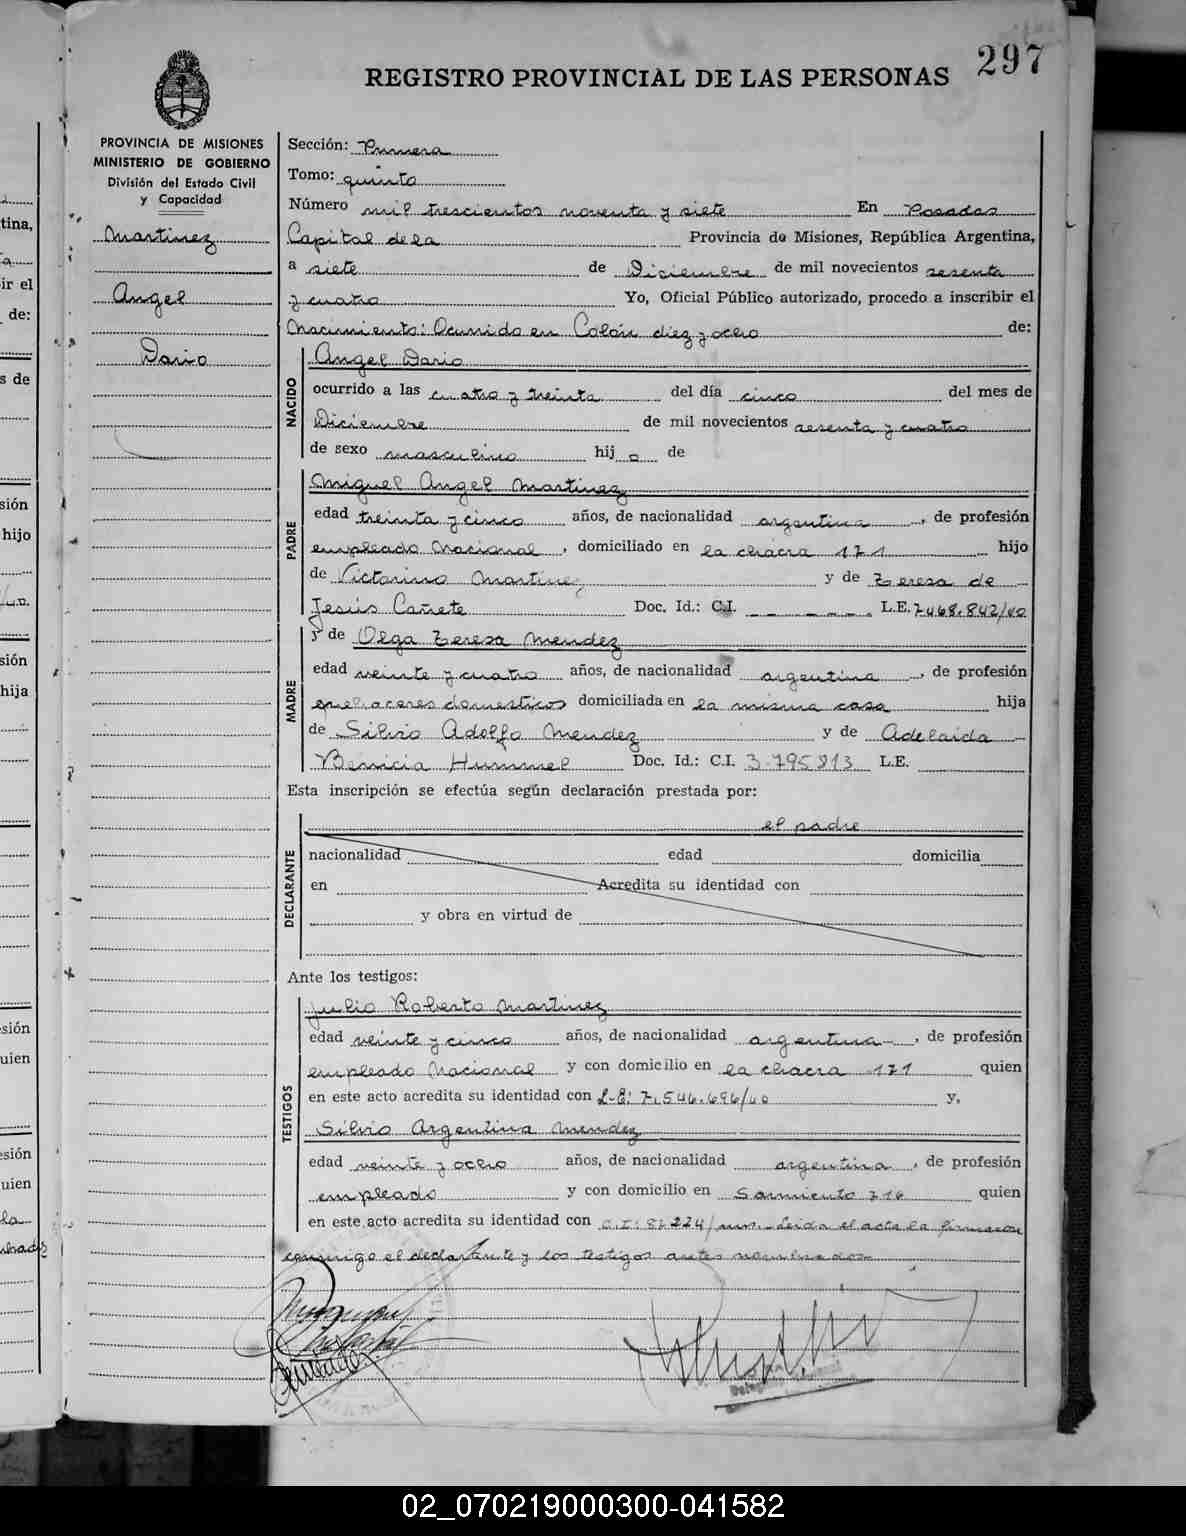 297
REGISTRO PROVINCIAL DE LAS PERSONAS
PROVINCIA DE MISIONES
MINISTERIO DE GOBIERNO
División del Estado Civil
y Capacidad
Martinez
Angel
Dario
Sección: Primera
Tomo: quinto
Número mil trescientos noventa y siete En Posadas
Capital de la Provincia de Misiones, República Argentina,
a siete de Diciembre de mil novecientos sesenta
y cuatro Yo, Oficial Público autorizado, procedo a inscribir el
Nacimiento: Ocurrido en Colón diez y ocho de:
NACIDO
Angel Dario
ocurrido a las cuatro y treinta del día cinco del mes de
Diciembre de mil novecientos sesenta y cuatro
de sexo masculino hij o de
PADRE
Miguel Angel Martinez
edad treinta y cinco años, de nacionalidad argentina, de profesión
empleado Nacional, domiciliado en la chacra 171 hijo
de Victorino Martinez y de Teresa de
Jesús Cañete Doc. Id.: C.I. L.E. 7468.842/40
MADRE
y de Olga Teresa Mendez
edad veinte y cuatro años, de nacionalidad argentina, de profesión
quehaceres domesticos domiciliada en la misma casa hija
de Silvio Adolfo Mendez y de Adelaida
Benicia Hummel Doc. Id.: C.I. 3.795813 L.E.
Esta inscripción se efectúa según declaración prestada por:
DECLARANTE
el padre
nacionalidad edad domicilia
en Acredita su identidad con
y obra en virtud de
Ante los testigos:
TESTIGOS
Julio Roberto Martinez
edad veinte y cinco años, de nacionalidad argentina, de profesión
empleado Nacional y con domicilio en la chacra 171 quien
en este acto acredita su identidad con L-E: 7.546.696/40 y,
Silvio Argentina Mendez
edad veinte y ocho años, de nacionalidad argentina, de profesión
empleado y con domicilio en Sarmiento 716 quien
en este acto acredita su identidad con C.I: 87224/mns. Leida el acta la firmaron
conmigo el declarante y los testigos antes nombrados
02_070219000300-041582